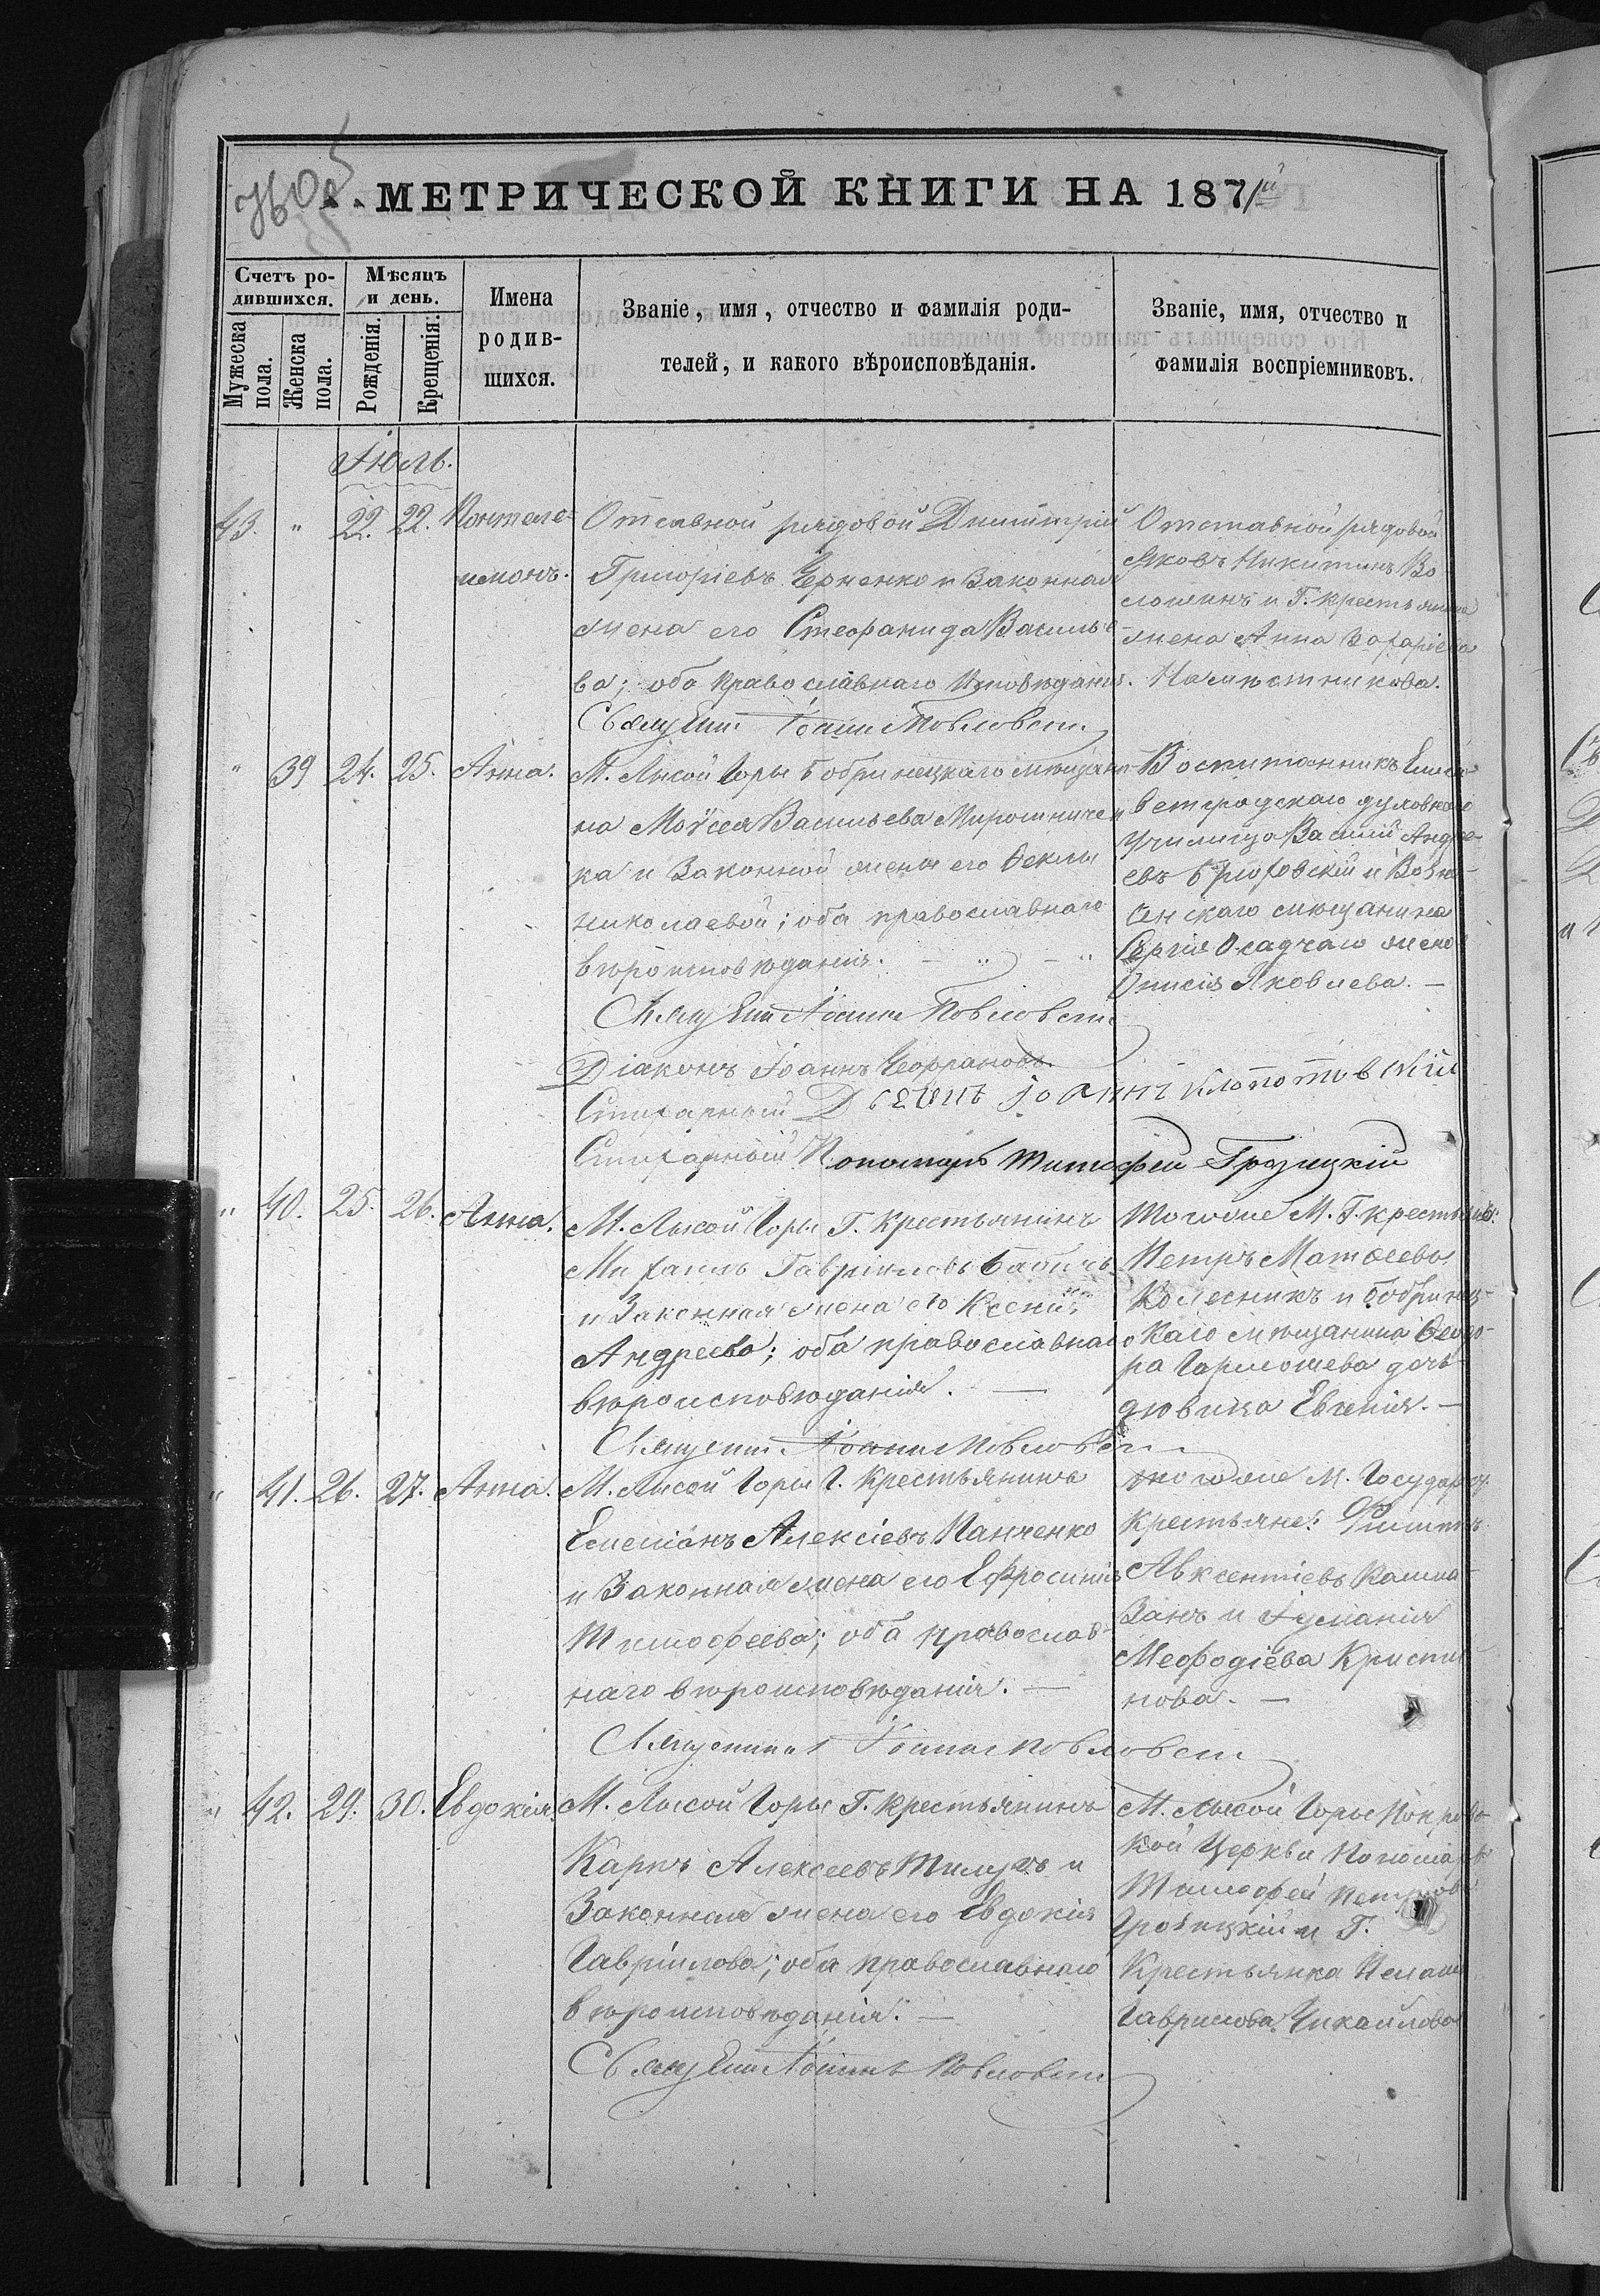 МЕТРИЧЕСКОЙ КНИГИ НА 1871й
Счетъ ро-
дившихся.
Мужеска
пола.
Женска
пола.
Мѣсяцъ
и день.
Рожденія.
Крещенія.
Имена
родив-
шихся.
Званіе, имя, отчество и фамилія роди-
телей, и какого вѣроисповѣданія.
Званіе, имя, отчество и
фамилія воспріемниковъ.
Іюль.
43. " 22. 22. Пантеле-
имонъ.
Отставной рядовой Димитрій
Григоріевъ Черненко и Законная
жена его Стефанида Василье-
ва; оба православнаго исповѣданія.
Священ Іоаннъ Павловск
Отставной рядовой
Яковъ Никитинъ Во
лошинъ и Г. крестьянина
жена Анна Захаріева
Намѣстникова.
" 39 24. 25. Анна.
М. Лысой Горы Бобринецкаго мѣщани
на Моѵсея Васильева Мирошничен
ка и Законной жены его Ѳеклы
Николаевой; оба православнаго
вѣроисповѣданія. – " – "
Священ Іоаннъ Павловск
Воспитанникъ Елиса
ветградскаго духовнаго
училища Василій Андре-
евъ и Возне-
сенскаго мѣщанина
Сергія Осадчаго жена
Яковлева. –
Діаконъ Іоаннъ
Стихарный Дьячекъ Іоаннъ Клопотовскій
Стихарный Пономарь Тимофей Грозицкій
" 40. 25. 26. Анна.
М. Лысой Горы Г. Крестьянинъ
Михаилъ Гавріиловъ Бабичъ
и Законная жена его Ксенія
Андреева; оба православнаго
вѣроисповѣданія. —
Священ Іоаннъ Павловск
Тогоже М. Г. крестьянинъ
Петръ Матѳеевъ
Колесникъ и Бобринец-
каго мѣщанина Ѳеодо-
ра дочь
дѣвица Евгенія. –
" 41. 26. 27. Анна.
М. Лысой Горы Г. Крестьянинъ
Емеліанъ Алексіевъ Панченко
и Законная жена его Ефросинія
Тимофеева; оба православ-
наго вѣроисповѣданія. —
Священникъ Іоаннъ Павловск
тогоже М. Государст.
Крестьяне: Филиппъ
Авксентіевъ Калма-
занъ и Іуліанія
Меѳодіева Кристи
нова. –
" 42. 29. 30. Евдокія.
М. Лысой Горы Г. Крестьянинъ
Карпъ Алексеевъ и
Законная жена его Евдокія
Гавріилова; оба православнаго
вѣроисповѣданія. —
Священ Іоаннъ Павловск
М. Лысой Горы Покровс
кой Церкви Пономарь
Тимофей Петровъ
Грозицкій и Г.
Крестьянка
Гаврилова Чикайлова